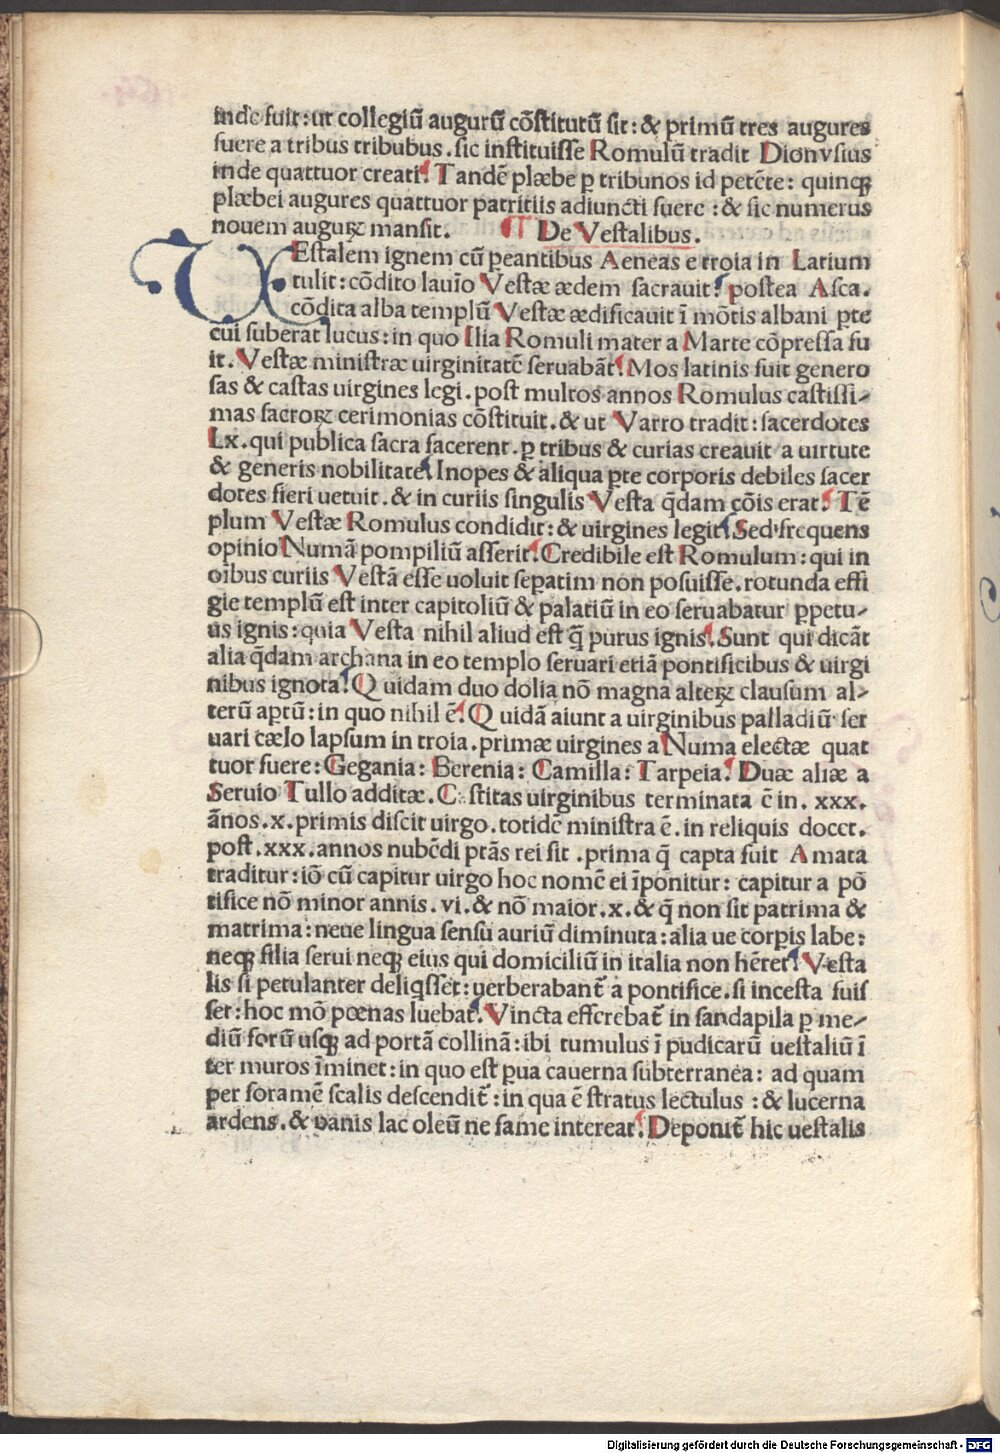 inde fuit:ut collegiū augurū cōstitutū sit:& primū tres augures
fuere a tribus tribubus.sic instituisse Romulū tradit Dionysius
inde quattuor creati. Tandē plæbe ꝑ tribunos id petēte: quinqꝫ
plæbei augures quattuor patritiis adiuncti fuere:& sic numerus
nouem auguꝝ mansit. De Vestalibus.
VEstalem ignem cū peantibus Aeneas e troia in Latium
tulit:cōdito lauīo Vestæ ædem sacrauit. postea Asca.
cōdita alba templū Vestæ ædificauit ī mōtis albani ꝑte
cui suberat lucus:in quo Ilia Romuli mater a Marte cōpressa fu
it. Vestæ ministræ uirginitatē seruabāt. Mos latinis fuit genero
sas & castas uirgines legi.post multos annos Romulus castissi-
mas sacroꝝ cerimonias cōstituit.& ut Varro tradit:sacerdotes
Lx.qui publica sacra facerent.ꝑ tribus & curias creauit a uirtute
& generis nobilitate. Inopes & aliqua ꝑte corporis debiles sacer
dotes fieri uetuit.& in curiis singulis Vesta q̄dam cōis erat. Tē
plum Vestæ Romulus condidit:& uirgines legit. Sed frequens
opinio Numā pompiliū asserit. Credibile est Romulum:qui in
oībus curiis Vestā esse uoluit seꝑatim non posuisse.rotunda effi
gie templū est inter capitoliū & palatiū in eo seruabatur ꝑpetu-
us ignis:quia Vesta nihil aliud est q̄ purus ignis. Sunt qui dicāt
alia q̄dam archana in eo templo seruari etiā pontificibus & uirgi
nibus ignota. Quidam duo dolia nō magna alteꝝ clausum al-
terū aptū:in quo nihil ē. Quidā aiunt a uirginibus palladiū ser
uari cælo lapsum in troia.primæ uirgines a Numa electæ quat
tuor fuere: Gegania: Berenia: Camilla: Tarpeia. Duæ aliæ a
Seruio Tullo additæ. Castitas uirginibus terminata ē in. xxx.
ānos.x.primis discit uirgo.totidē ministra ē.in reliquis docet.
post.xxx.annos nubēdi ptās rei sit.prima q̄ capta fuit Amata
traditur:iō cū capitur uirgo hoc nomē ei īponitur: capitur a pō
tifice nō minor annis.vi.& nō maior.x.& q̄ non sit patrima &
matrima:neue lingua sensu auriū diminuta:alia ue corꝑis labe:
neqꝫ filia serui neqꝫ eius qui domiciliū in italia non hēret. Vesta
lis si petulanter deliqsset:uerberabant̄ a pontifice.si incesta fuis
set:hoc mō pœnas luebat. Vincta efferebat̄ in sandapila ꝑ me-
diū forū usqꝫ ad portā collinā:ibi tumulus ī pudicarū uestaliū ī
ter muros īminet:in quo est ꝑua cauerna subterranea: ad quam
per foramē scalis descendit̄:in qua ē stratus lectulus :& lucerna
ardens.& panis lac oleū ne fame intereat. Deponit̄ hic uestalis
Digitalisierung gefördert durch die Deutsche Forschungsgemeinschaft - DFG